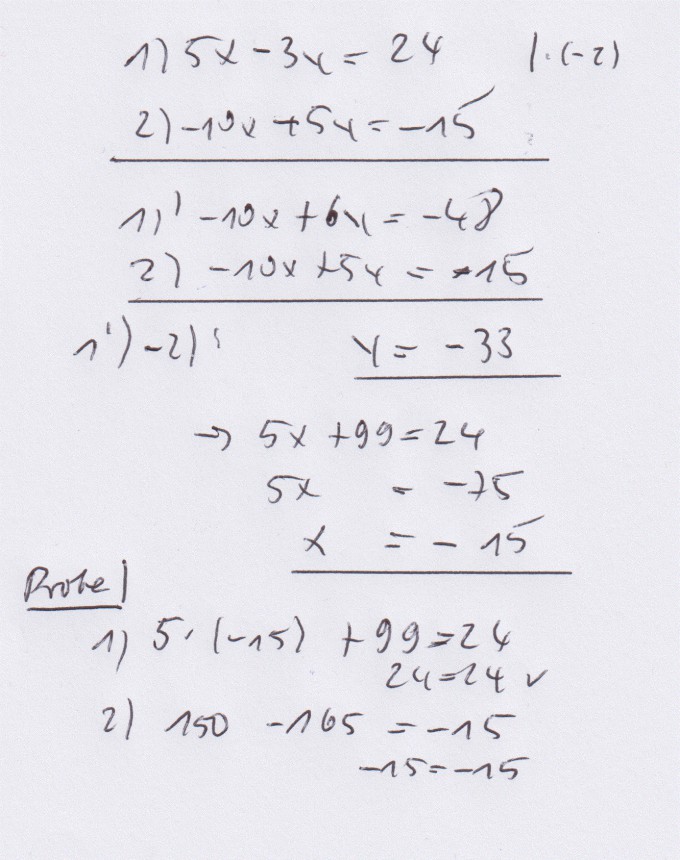 1) 5x - 3y = 24 | · (-2)
2) -10x + 5y = -15
1)' -10x + 6y = -48
2) -10x + 5y = -15
1') - 2)' y = -33
→ 5x + 99 = 24
5x = -75
x = - 15
Probe
1) 5 · (-15) + 99 = 24
24 = 24 ✓
2) 150 - 165 = -15
-15 = -15